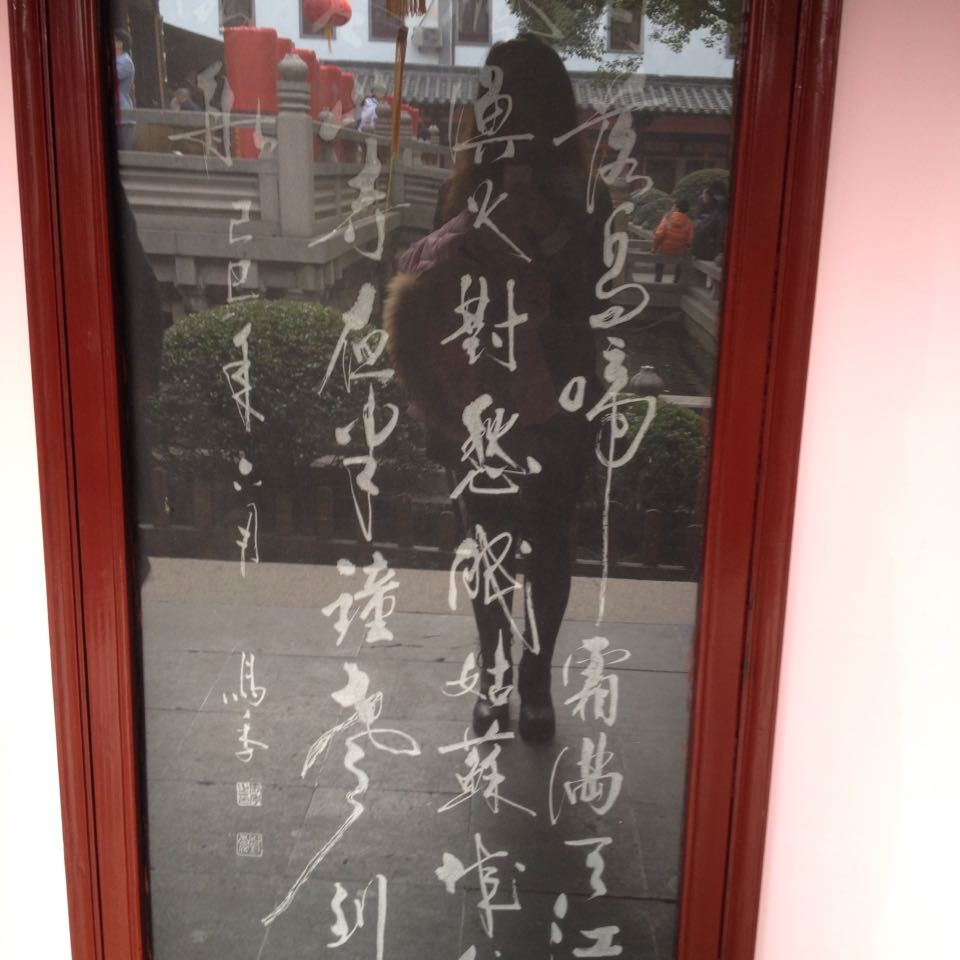 落烏啼霜滿天江
漁火對愁眠姑蘇城
山寺夜半鐘聲到
船
己巳年六月 馬季